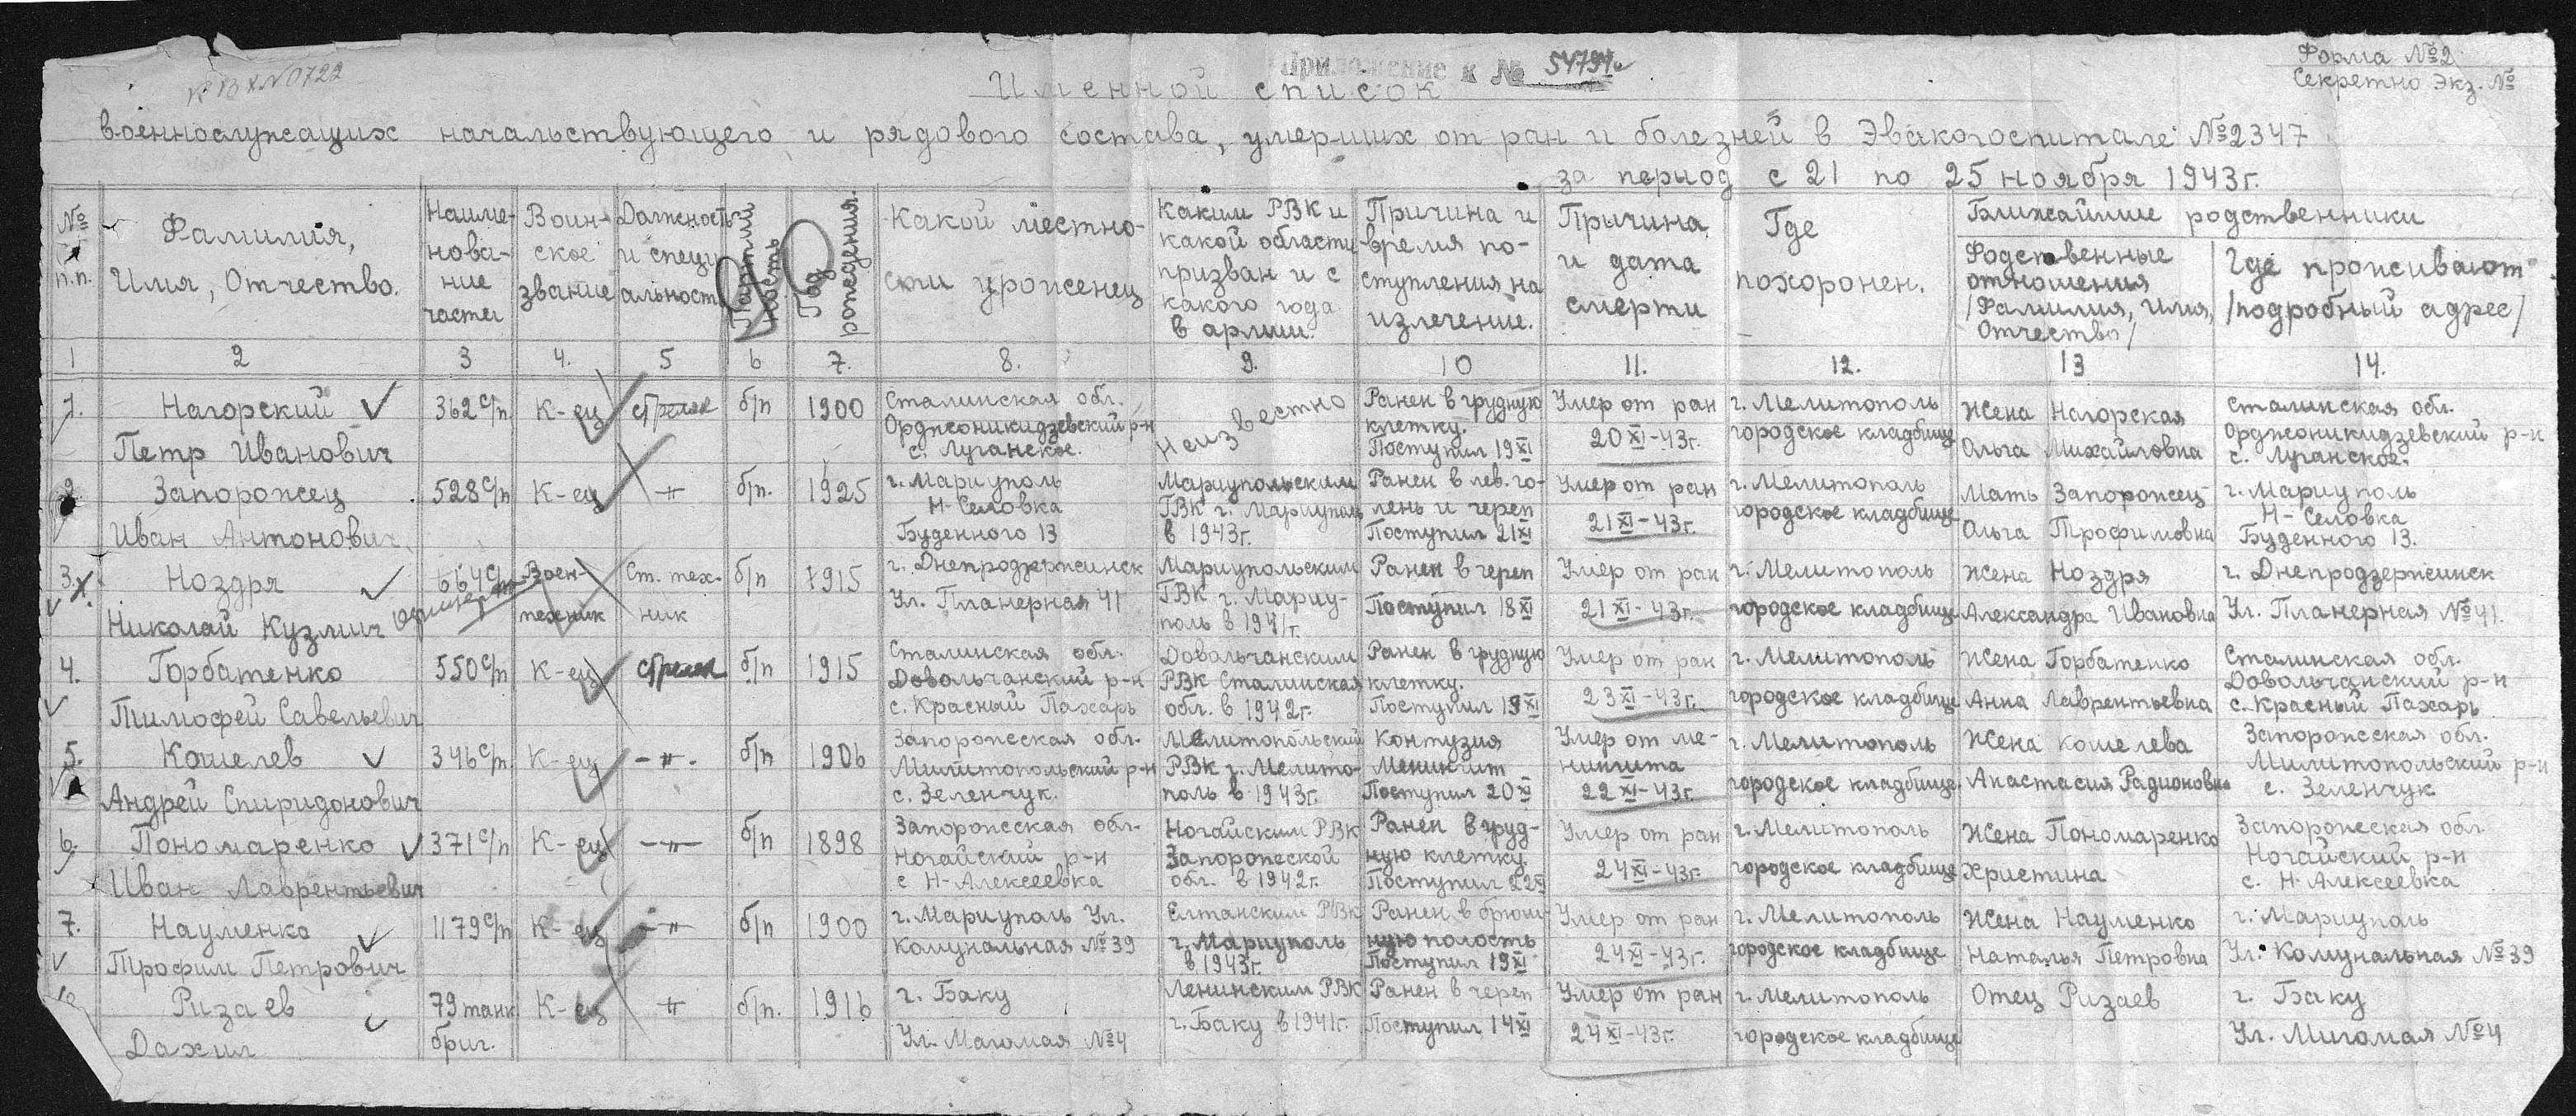 к вх N 0722
Приложение к № 54794с
Форма №2
Секретно Экз. №
Именной список
военнослужащих начальствующего и рядового состава, умерших от ран и болезней в Эвакогоспитале №2347
за период с 21 по 25 ноября 1943г.
№ п.п.
Фамилия,
Имя, Отчество.
Наиме-
нова-
ние
части
Воин-
ское
звание
Должность
и специ
альность
Партий
ность
Год
рождения.
Какой местно-
сти уроженец
Каким РВК и
какой области
призван и с
какого года
в армии.
Причина и
время по-
ступления на
излечение.
Причина
и дата
смерти
Где
похоронен.
Ближайшие родственники
Родственные
отношения
/Фамилия, имя,
Отчество/
Где проживают
/подробный адрес/
1 2 3 4. 5 6 7. 8. 9. 10 11. 12. 13 14.
1.
Нагорский
Петр Иванович
362 с/п
К-ец
стрелок
б/п
1900
Сталинская обл.
Орджоникидзевский р-н
с. Луганское.
Неизвестно
Ранен в грудную
клетку.
Поступил 19 XI
Умер от ран
20 XI-43г.
г. Мелитополь
городское кладбище
Жена Нагорская
Ольга Михайловна
Сталинская обл.
Орджоникидзевский р-н
с. Луганское.
2.
Запорожец
Иван Антонович
528 с/п
К-ец
-"-
б/п.
1925
г. Мариуполь
Н-Селовка
Буденного 13
Мариупольским
ГВК г. Мариуполь
в 1943г.
Ранен в лев. го-
лень и череп
Поступил 21 XI
Умер от ран
21 XI-43г.
г. Мелитополь
городское кладбище
Мать Запорожец
Ольга Трофимовна
г. Мариуполь
Н-Селовка
Буденного 13.
3.
Ноздря
Николай Кузмич
664 с/п
офицер
Воен-
техник
Ст. тех-
ник
б/п
1915
г. Днепродзержинск
Ул. Планерная 41
Мариупольским
ГВК г. Мариу-
поль в 1941г.
Ранен в череп
Поступил 18 XI
Умер от ран
21 XI-43г.
г. Мелитополь
городское кладбище
Жена Ноздря
Александра Ивановна
г. Днепродзержинск
Ул. Планерная №41.
4.
Горбатенко
Тимофей Савельевич
550 с/п
К-ец
стрелок
б/п
1915
Сталинская обл.
Довольчанский р-н
с. Красный Пахарь
Довольчанским
РВК Сталинская
обл. в 1942г.
Ранен в грудную
клетку.
Поступил 19 XI
Умер от ран
23 XI-43г.
г. Мелитополь
городское кладбище
Жена Горбатенко
Анна Лаврентьевна
Сталинская обл.
Довольчанский р-н
с. Красный Пахарь
5.
Кошелев
Андрей Спиридонович
346 с/п
К-ец
-"-.
б/п
1906
Запорожская обл.
Милитопольский р-н
с. Зеленчук.
Мелитопольский
РВК г. Мелито-
поль в 1943г.
Контузия
Менингит
Поступил 20 XI
Умер от ме-
нингита
22 XI-43г.
г. Мелитополь
городское кладбище.
Жена Кошелева
Анастасия Радионовна
Запорожская обл.
Милитопольский р-н
с. Зеленчук
6.
Пономаренко
Иван Лаврентьевич
371 с/п
К-ец
-"-
б/п
1898
Запорожская обл.
Ногайский р-н
с Н-Алексеевка
Ногайским РВК
Запорожской
обл. в 1942г.
Ранен в груд-
ную клетку.
Поступил 22 XI
Умер от ран
24 XI-43г.
г. Мелитополь
городское кладбище
Жена Пономаренко
Христина
Запорожская обл
Ногайский р-н
с. Н-Алексеевка
7.
Науменко
Трофим Петрович
1179 с/п
К-ец
-"-
б/п
1900
г. Мариуполь Ул.
Комунальная №39
Елтанским РВК
г. Мариуполь
в 1943г.
Ранен в брюш-
ную полость
Поступил 19 XI
Умер от ран
24 XI-43г.
г. Мелитополь
городское кладбище
Жена Науменко
Наталья Петровна
г. Мариуполь
Ул. Комунальная №39
Ризаев
Дахил
79 танк
бриг.
К-ец
-"-
б/п.
1916
г. Баку
Ул. Магомая №4
Ленинским РВК
г. Баку в 1941г.
Ранен в череп
Поступил 14 XI
Умер от ран
24 XI-43г.
г. Мелитополь
городское кладбище
Отец Ризаев
г. Баку
Ул. Мигомая №4